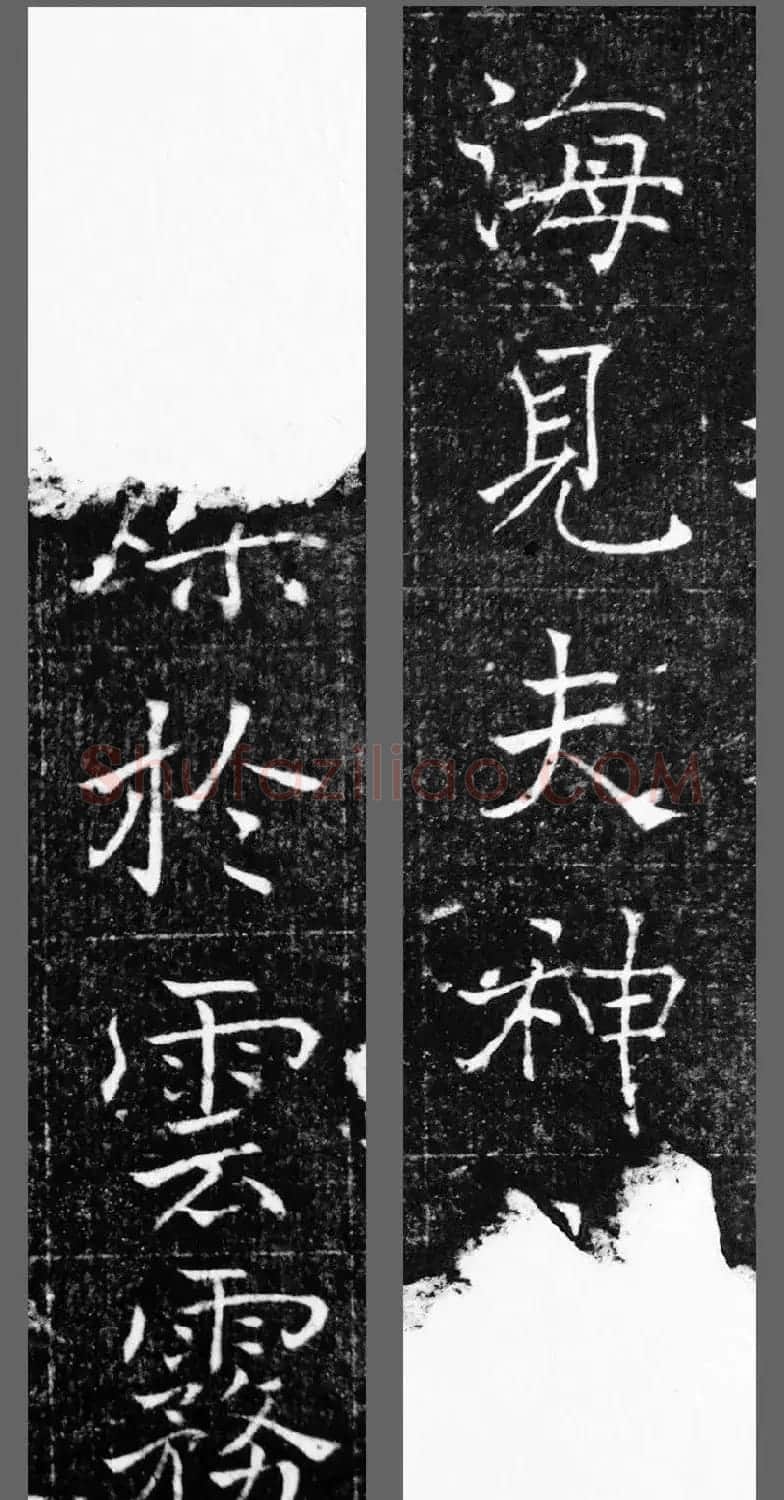 海見夫神
於雲霧
Shufaziliao.COM